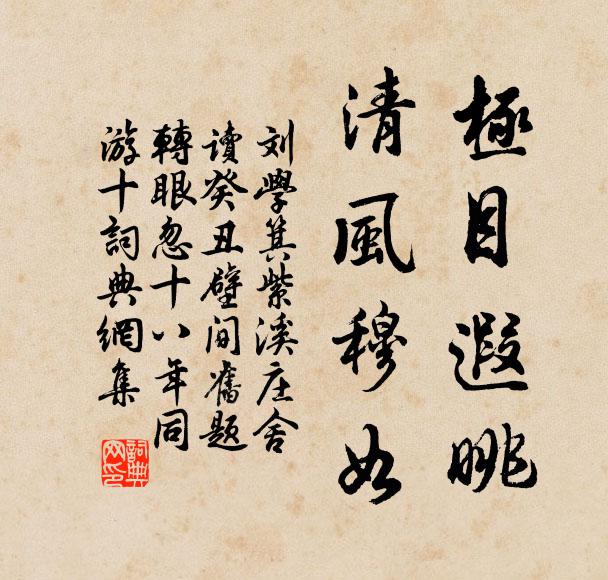 極目遐眺
清風穆如
刘學箕紫溪庄舍
讀癸丑壁间舊题
轉眼忽十八年同
游十詞典網集
詞典网印